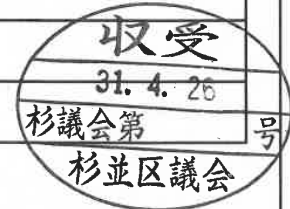 収受
31. 4. 26
杉議会第 号
杉並区議会